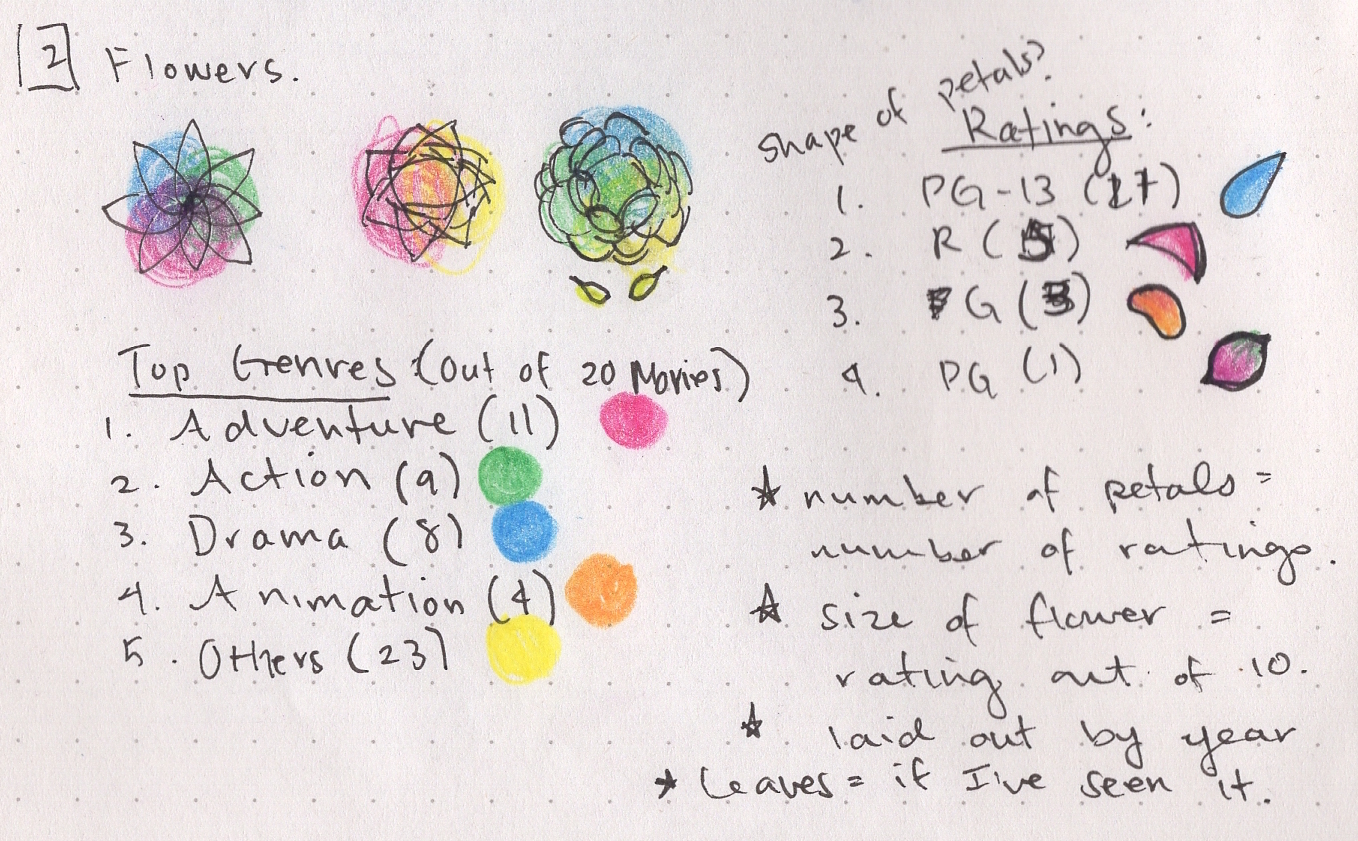 2 Flowers.
shape of petals?
Ratings:
1. PG-13 (17)
2. R (5)
3. G (3)
4. PG (1)
Top Genres (out of 20 Movies)
1. Adventure (11)
2. Action (9)
3. Drama (8)
4. Animation (4)
5. Others (23)
☆ number of petals =
number of ratings.
☆ size of flower =
rating out of 10.
☆ laid out by year
* leaves = if I've seen it.